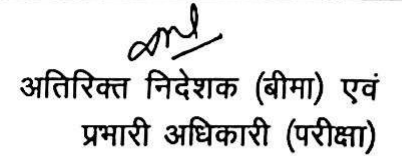 अतिरिक्त निदेशक (बीमा) एवं
प्रभारी अधिकारी (परीक्षा)